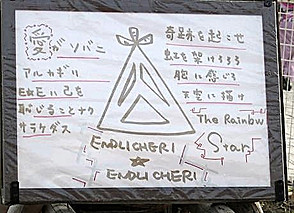 愛がソバニ
アルカギリ
E☆Eに己を
恥じることナク
サラケダス
奇跡を起こせ
虹を架けろ
胸に感じろ
天空に描け
The Rainbw
Star
ENDLICHERI
☆
ENDLICHERI